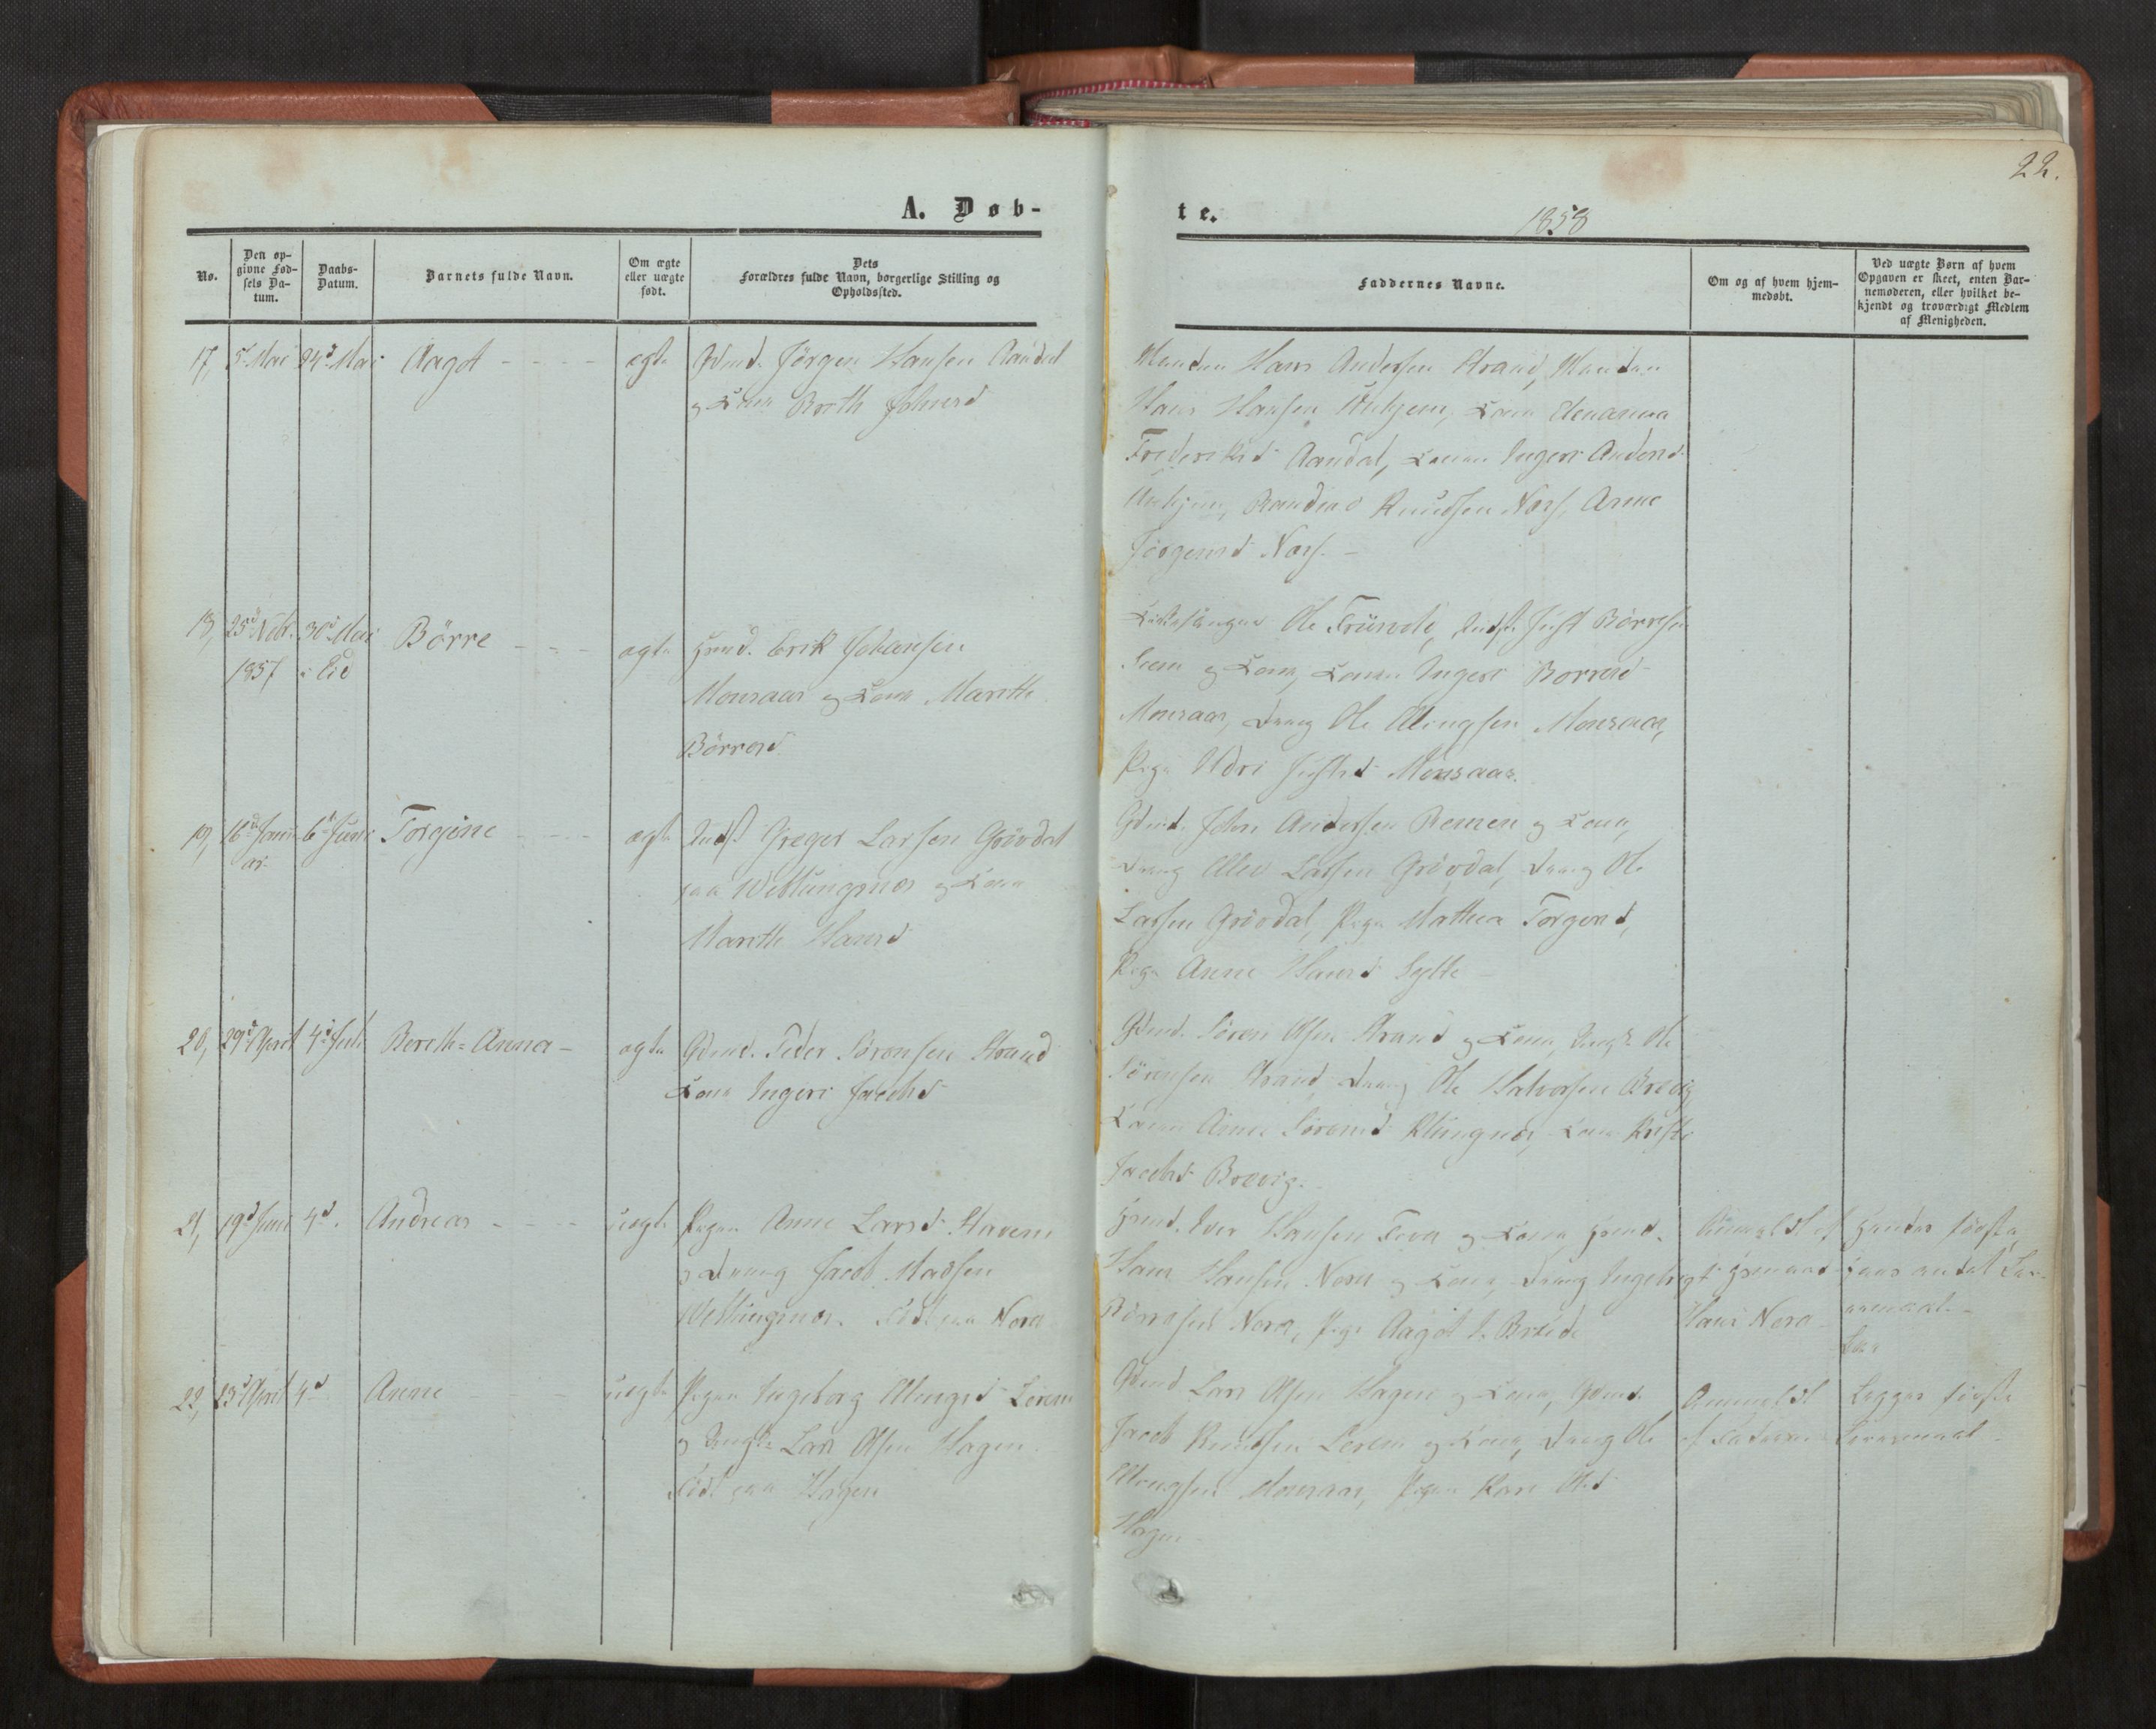 22.
A. Døb-
te.
1858
No.
Den op-
givne Fød-
sels Da-
tum.
Daabs-
Datum.
Barnets fulde Navn.
Om ægte
eller uægte
født.
Dets
Forældres fulde Navn, borgerlige Stilling og
Opholdssted.
Faddernes Navne.
Om og af hvem hjem-
medøbt.
Ved uægte Børn af hvem
Opgaven er skeet, enten Bar-
nemoderen, eller hvilket be-
kjendt og troværdigt Medlem
af Menigheden.
17, 5t Mai 24d Mai Aagot ægte Gdmd. Jörgen Hansen Aandal
og Kone Brith Johnsd
Manden Hans Andersen Strand, Manden
Hans Hansen Kone
Frederiksd Aandal, Konen Ingeri Andersd
Knudsen Næs, Anne
Jörgensd Næs. -
18, 25d Nobr. 30d Mai Börre ægte Hmd. Erik Johansen
1857 i Eid
Monsaas og Kone Marithe
Börresd
Kirkesanger Ole Just Börresen
og Kone, Konen Ingeri Börresd
Monsaas, Dreng Ole Monsaas,
Pige Justsd Monsaas.
19, 16d Janu- 6d Juni Torgine ægte Inds. Greger Larsen Grövdal
ar.
paa Wetlungnæs og Kone
Marithe Hansd
Gdmd. John Andersen Remen og Kone,
Dreng Larsen Grövdal, Dreng Ole
Larsen Grövdal, Pige Mathea Torgersd,
Pige Anne Hansd Sylte -
20, 29d April 4d Juli Bereth-Anna - ægte Gdmd. Peder Sörensen Strand
Kone Ingeri Jacobsd
Gdmd. Sören Olsen Strand og Kone, Ungk. Ole
Sörensen Strand, Dreng Ole Halvorsen Brevig,
Konen Anne Sörensd Klungnæs, Kone
Jacobsd Brevig.
21, 19d Juni 4d. Andreas uægte Pigen Anne Larsd Stavem
og Dreng Jacob Madsen
Wetlungnæs. Födt paa Nora
Hmd. Iver Hansen og Kone, Hmd.
Hans Hansen Nora og Kone, Dreng Ingebrigt
Börresen Nora, Pige Aagot
Anmeldt af
Hans Nora
Hendes förste,
hans andet Lei-
ermaal. -
22, 23d April 4d Anne uægte Pigen Ingeborg Lerem
og Ungk. Lars Olsen Hagen.
Födt paa Hagen
Gdmd Lars Olsen Hagen og Kone, Gdmd.
Jacob Knudsen Lerem og Kone, Dreng Ole
Monsaas, Pigen Kari Olsd
Hagen -
Anmeldt
af Faderen
Begges förste
Leiermaal -